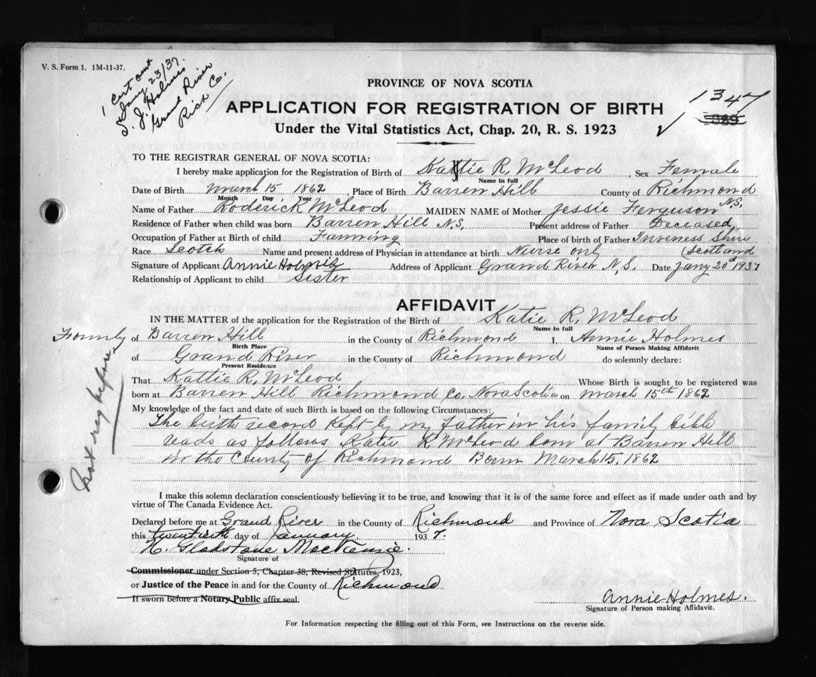 V. S. Form 1. 1M-11-37.
1 Cert out
Jany 23/37.
S. J. Holmes
Grand River
Rich Co.
PROVINCE OF NOVA SCOTIA
APPLICATION FOR REGISTRATION OF BIRTH
1347
Under the Vital Statistics Act, Chap. 20, R. S. 1923
TO THE REGISTRAR GENERAL OF NOVA SCOTIA:
I hereby make application for the Registration of Birth of Katie R. McLeod, Sex Female
Name in full
Date of Birth March 15 1862, Place of Birth Barren Hill County of Richmond
Month Day Year
N.S.
Name of Father Roderick McLeod MAIDEN NAME of Mother Jessie Ferguson
Residence of Father when child was born Barren Hill N.S. Present address of Father Deceased
Occupation of Father at Birth of child Farming Place of birth of Father Inverness Shire
Race Scotch Name and present address of Physician in attendance at birth Nurse only (Scotland
Signature of Applicant Annie Holmes Address of Applicant Grand River N.S. Date Jany 20th 1937
Relationship of Applicant to child Sister
AFFIDAVIT
IN THE MATTER of the application for the Registration of the Birth of Katie R. McLeod
Name in full
Formly of Barren Hill in the County of Richmond I, Annie Holmes
Birth Place Name of Person Making Affidavit
of Grand River in the County of Richmond do solemnly declare:
Present Residence
That Kattie R. McLeod Whose Birth is sought to be registered was
born at Barren Hill Richmond Co. Nova Scotia on March 15th 1862
My knowledge of the fact and date of such Birth is based on the following Circumstances:
The birth record kept by my father in his family bible
reads as follows Katie R McLeod born at Barren Hill
in the County of Richmond Born March 15, 1862
Not reg before
I make this solemn declaration conscientiously believing it to be true, and knowing that it is of the same force and effect as if made under oath and by
virtue of The Canada Evidence Act.
Declared before me at Grand River in the County of Richmond and Province of Nova Scotia
this twentieth day of January 1937.
H. Gladstone MacKenzie.
Signature of
Commissioner under Section 5, Chapter 38, Revised Statutes, 1923,
or Justice of the Peace in and for the County of Richmond
If sworn before a Notary Public affix seal.
Annie Holmes.
Signature of Person making Affidavit.
For Information respecting the filling out of this Form, see Instructions on the reverse side.